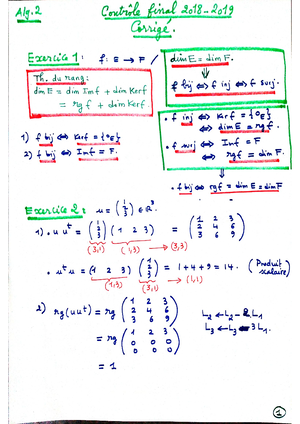 Alg.2
Contrôle final 2018-2019
Corrigé.
Exercice 1: f: E → F / dim E = dim F.
⇓
f bij ⇔ f inj ⇔ f surj.
Th. du rang:
dim E = dim Imf + dim Kerf
= rg f + dim Kerf
• f inj ⇔ Kerf = {0_E}
⇔ dim E = rg f.
• f surj ⇔ Imf = F
⇔ rg f = dim F.
↓
• f bij ⇔ rg f = dim E = dim F
1) f bij ⇔ Kerf = {0_E}
2) f bij ⇔ Imf = F.
Exercice 2: u = (1 2 3) ∈ ℝ³.
1) • u ᵗu = (1 2 3) (1 2 3) = (1 2 3
2 4 6
3 6 9)
(3,1) (1,3) → (3,3)
• ᵗu u = (1 2 3) (1 2 3) = 1+4+9 = 14. (Produit scalaire)
(1,3) (3,1) → (1,1)
2) rg(u ᵗu) = rg (1 2 3
2 4 6
3 6 9)
L₂ ← L₂ - 2 L₁
L₃ ← L₃ - 3 L₁.
= rg (1 2 3
0 0 0
0 0 0)
= 1
1